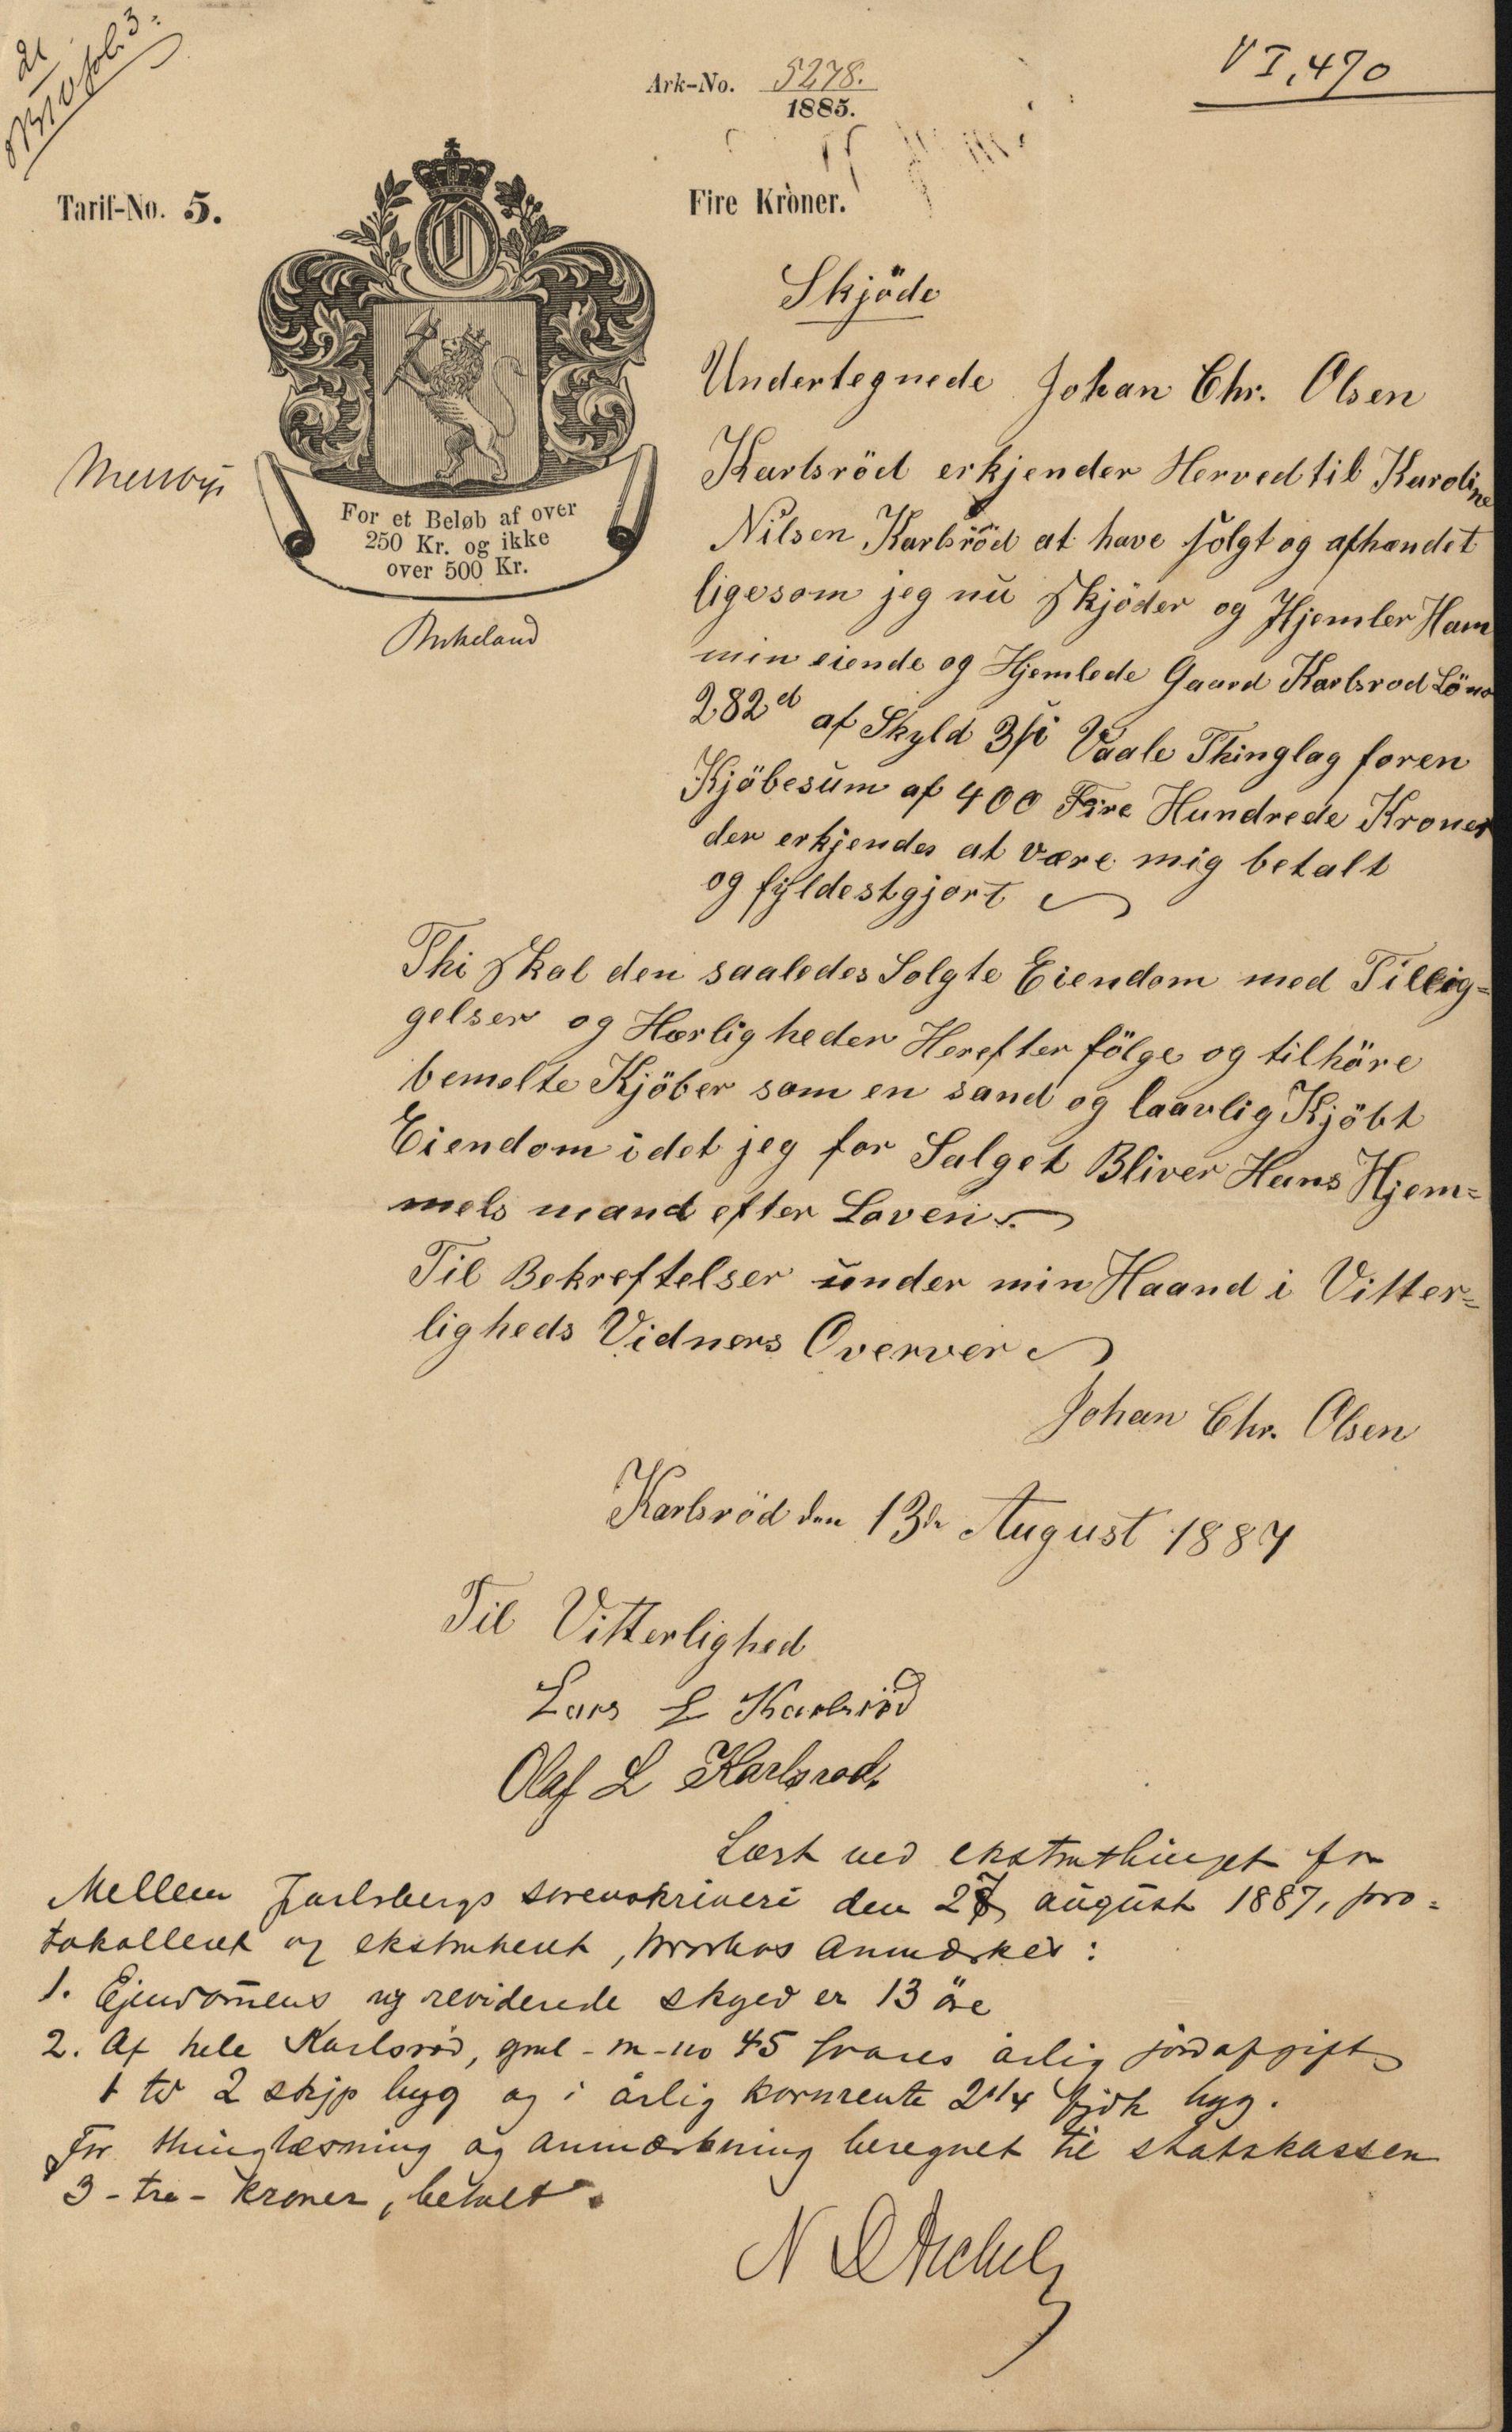 VI, 470
Ark-No. 5278.
1885.
Tarif-No. 5.
Fire Kroner.
For et Beløb af over
250 Kr. og ikke
over 500 Kr.
Skjöde
Undertegnede Johan Chr. Olsen
Karlsröd erkjender Herved til Karoline
Nilsen Karlsröd at have solgt og afhændet
ligesom jeg nu Skjöder og Hjemler Ham
min eiende og Hjemlede Gaard Karlsrod Löno
282d af Skyld 3/i Vaale Thinglag foren
Kjöbesum af 400 Fire Hundrede Kroner
der erkjendes at være mig betalt
og fyldestgjort
Thi Skal den saaledes Solgte Eiendom med Tillig=
gelser og Herligheder Herefter fölge og tilhöre
bemelte Kjöber som en sand og laavlig Kjöbt
Eiendom idet jeg for Salget Bliver Hans Hjem=
mels mand efter Loven.
Til Bekreftelser under min Haand i Vitter=
ligheds Vidners Overver
Johan Chr. Olsen
Karlsröd den 13de August 1887
Til Vitterlighed
Lars L Karlsröd
Olaf L Karlsrod
Læst ved ekstrathinget for
Mellem Jarlsbergs sorenskriveri den 27 august 1887, pro=
tokolleret og ekstraheret, hvorhos anmærkes:
1. Ejendommens ny reviderede skyld er 13 öre
2. Af hele Karlsröd, gml-m-no 45 svares årlig jordafgift
1 td 2 skjp byg og i årlig kornrente 2 1/4 fjdk byg.
For thinglæsning og anmærkning beregnet til statskassen
3 - tre - kroner, betalt.